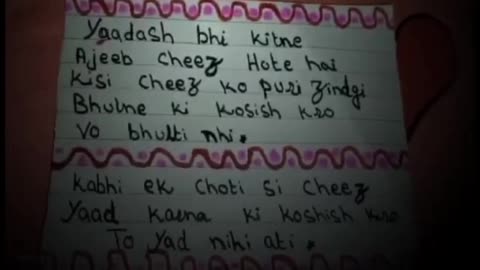 Yaadash bhi kitne
Ajeeb cheez Hote hai
Kisi cheez ko puri zindgi
Bhulne ki kosish kro
Vo bhulti nhi.
Kabhi ek choti si cheez
Yaad karna ki koshish kro
To yad nihi ati.